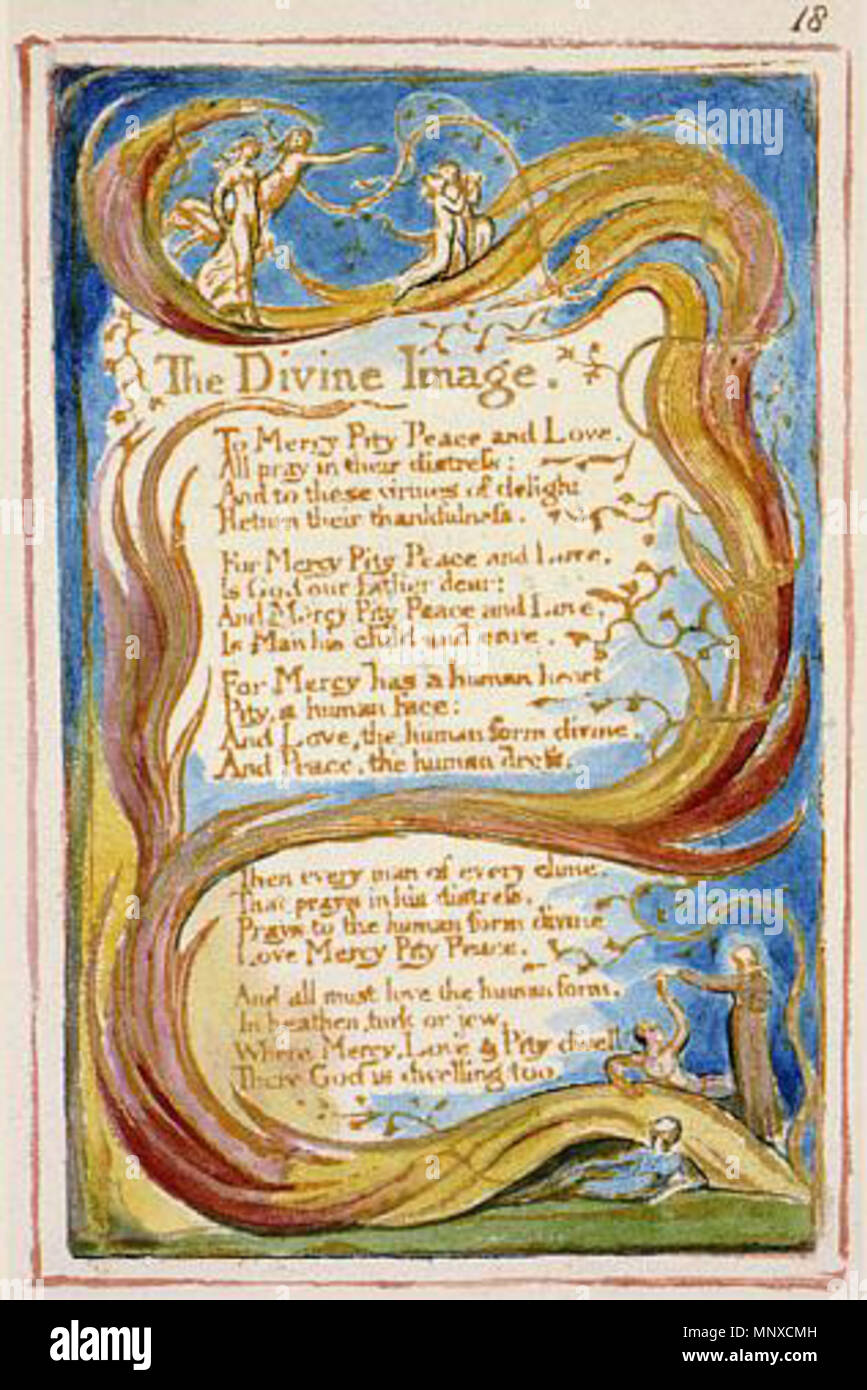 18
The Divine Image.
To Mercy Pity Peace and Love.
All pray in their distress:
And to these virtues of delight
Return their thankfulness.
For Mercy Pity Peace and Love,
Is God our father dear:
And Mercy Pity Peace and Love,
Is Man his child and care.
For Mercy has a human heart
Pity, a human face:
And Love, the human form divine,
And Peace, the human dress.
Then every man of every clime,
That prays in his distress,
Prays to the human form divine
Love Mercy Pity Peace.
And all must love the human form,
In heathen, turk or jew.
Where Mercy, Love & Pity dwell
There God is dwelling too
alamy
Image ID: MNXCMH
www.alamy.com